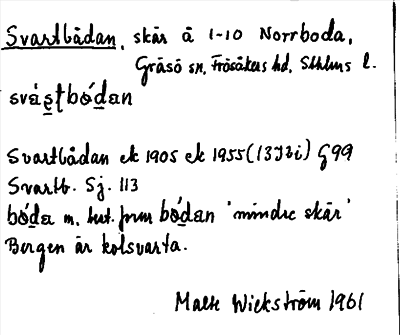 Svartbådan, skär å 1-10 Norrboda,
Gräsö sn, Frösåkers hd, Sthlms l.
svạ́ṣtbóđan
Svartbådan ek 1905 ek 1955 (13I7i) G99
Svartb. Sj. 113
båda m. best. form bådan 'mindre skär'
Bergen är kolsvarta.
Wickström 1961